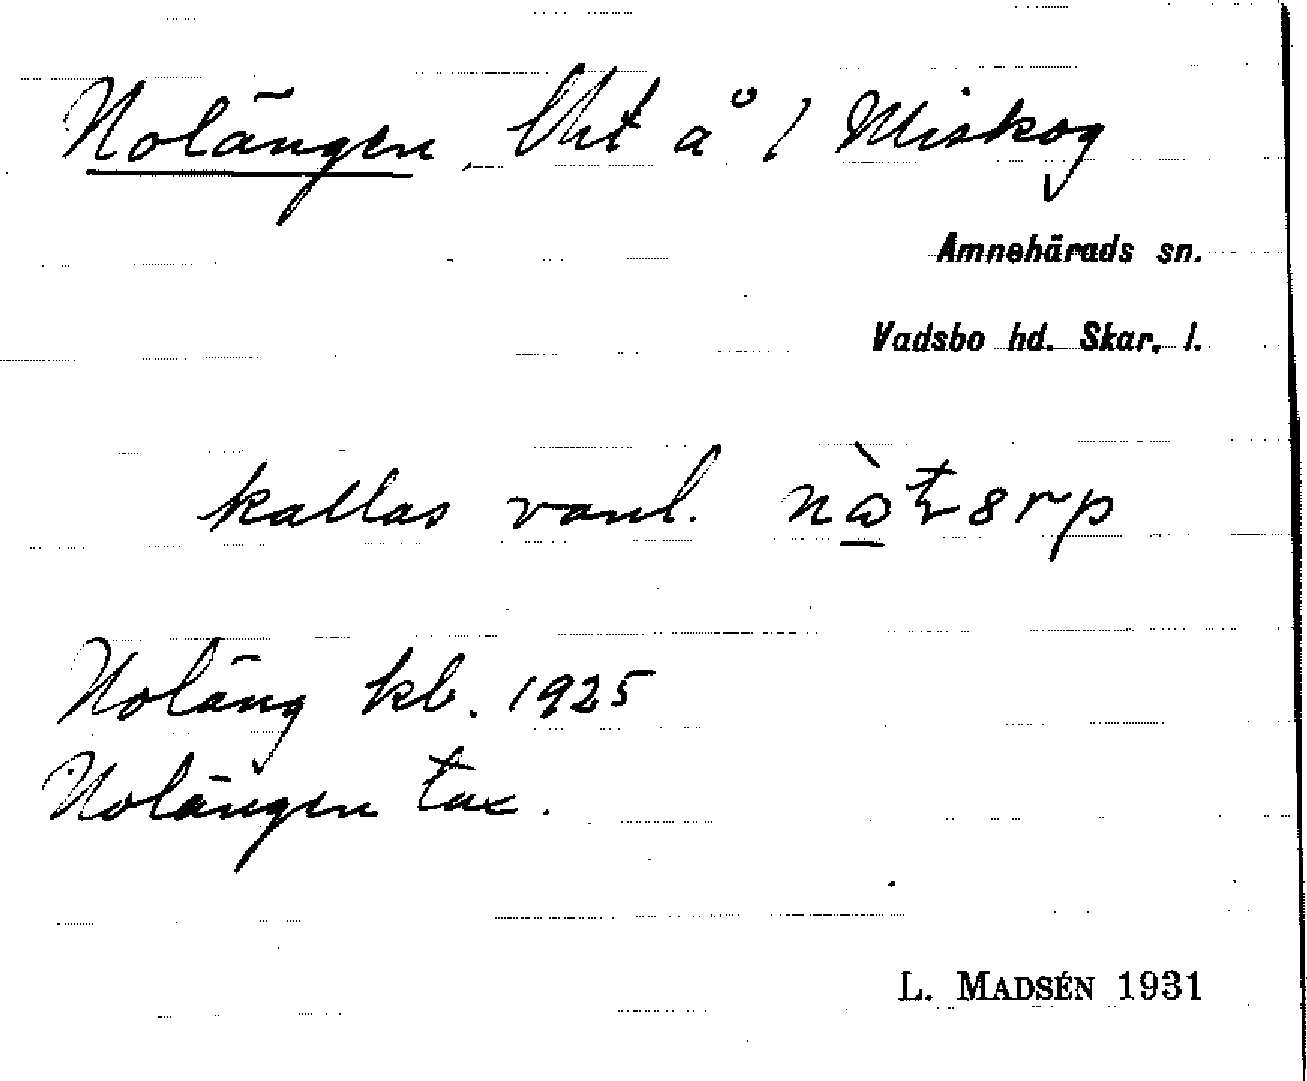 Nolängen lht å 1 Miskog
Amnehärads sn.
Vadsbo hd. Skar. l.
kallas vanl.
Noläng kb. 1925
Nolängen tax.
L. MADSÉN 1931